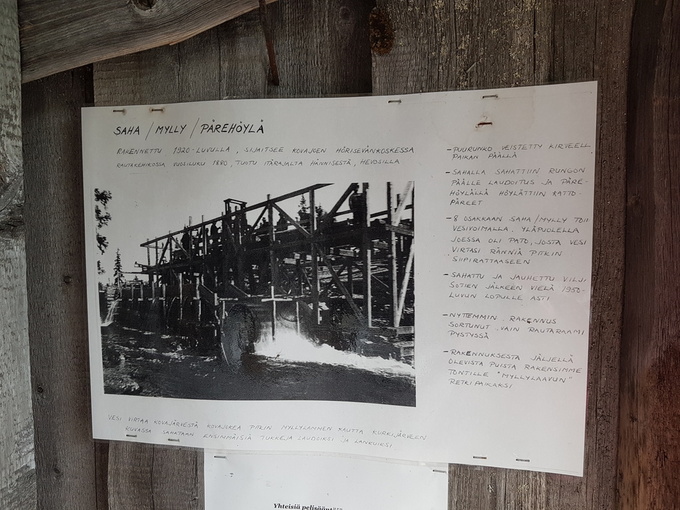 SAHA / MYLLY / PÄREHÖYLÄ
RAKENNETTU 1920-LUVULLA, SIJAITSEE KOVAJOEN HÖRISEVÄNKOSKESSA
RAUTAKEHIKOSSA VUOSILUKU 1880, TUOTU ITÄRAJALTA HÄNNISESTÄ, HEVOSILLA
- PUURUNKO VEISTETTY KIRVEELL
PAIKAN PÄÄLLÄ
- SAHALLA SAHATTIIN RUNGON
PÄÄLLE LAUDOITUS JA PÄRE-
HÖYLÄLLÄ HÖYLÄTTIIN KATTO-
PÄREET
- 8 OSAKKAAN SAHA/MYLLY TOII
VESIVOIMALLA. YLÄPUOLELLA
JOESSA OLI PATO, JOSTA VESI
VIRTASI RÄNNIÄ PITKIN
SIIPIRATTAASEEN
- SAHATTU JA JAUHETTU VILJ
SOTIEN JÄLKEEN VIELÄ 1950-
LUVUN LOPULLE ASTI
- NYTTEMMIN RAKENNUS
SORTUNUT, VAIN RAUTARAAMI
PYSTYSSÄ
- RAKENNUKSESTA JÄLJELLÄ
OLEVISTA PUISTA RAKENSIMME
TONTILLE "MYLLYLAAVUN"
RETKIPAIKAKSI
VESI VIRTAA KOVAJÄRVESTÄ KOVAJOKEA PITKIN MYLLYLAMMEN KAUTTA KURKIJÄRVEEN
KUVASSA SAHATAAN ENSIMMÄISIÄ TUKKEJA LAUDUIKSI JA LANKUIKSI
Yhteisiä